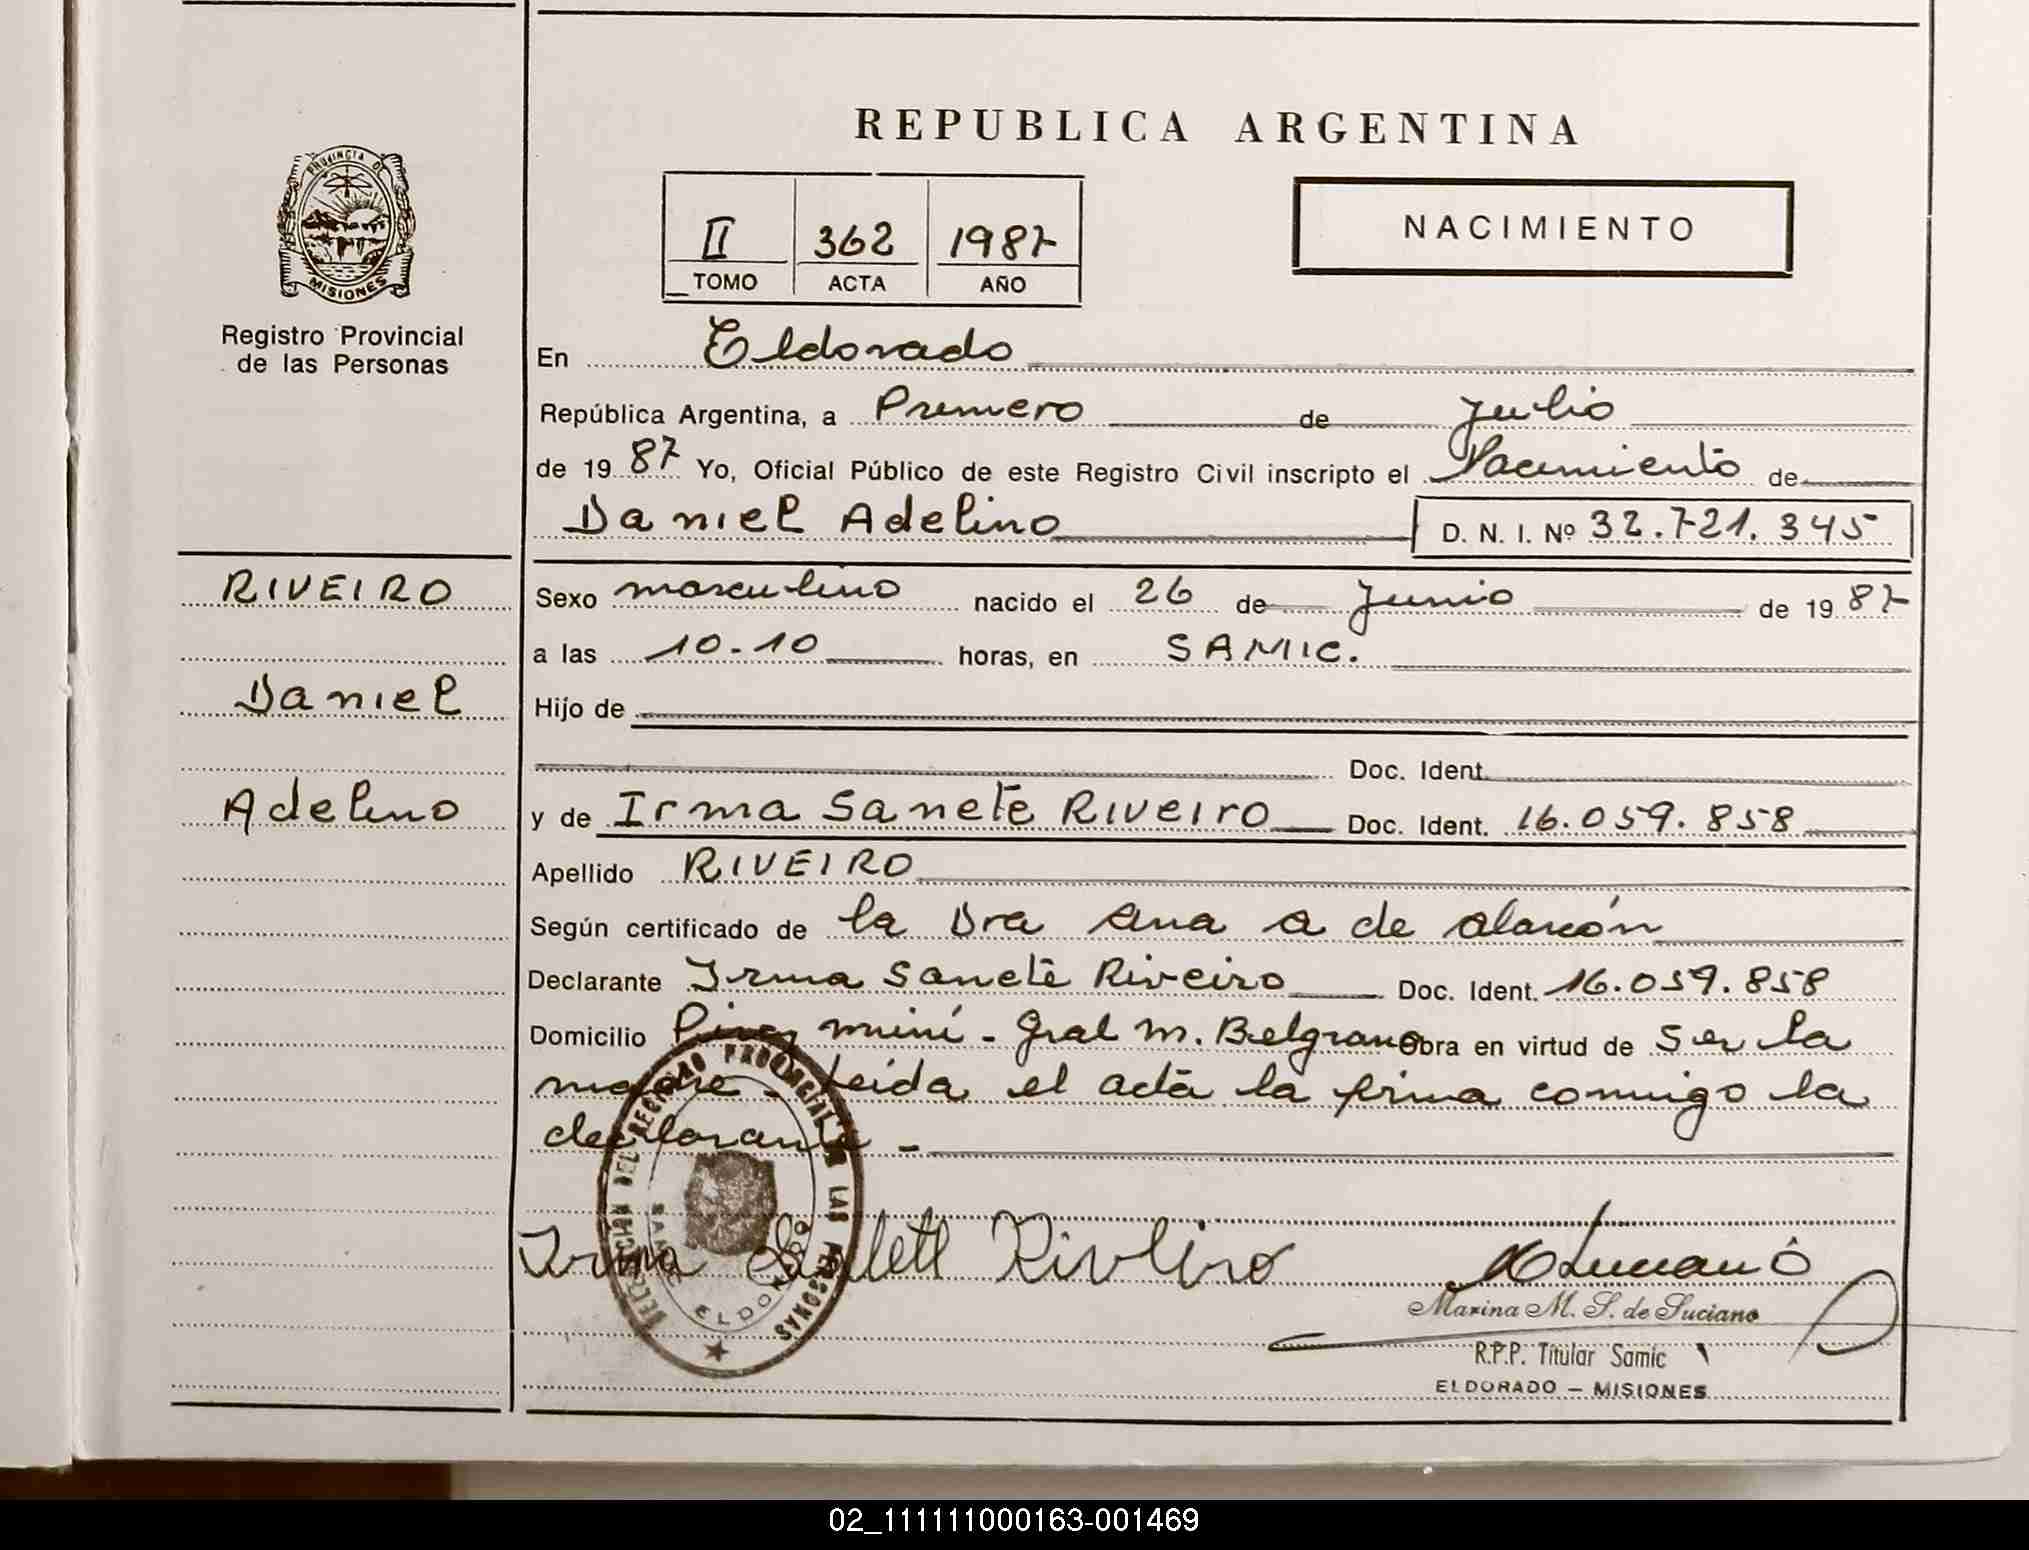 REPUBLICA ARGENTINA
PROVINCIA DE
MISIONES
Registro Provincial
de las Personas
II 362 1987
TOMO ACTA AÑO
NACIMIENTO
En Eldorado
República Argentina, a Primero de Julio
de 1987 Yo, Oficial Público de este Registro Civil inscripto el Nacimiento de
Daniel Adelino D. N. I. Nº 32.721.345
RIVEIRO
Daniel
Adelino
Sexo masculino nacido el 26 de Junio de 1987
a las 10-10 horas, en SAMIC.
Hijo de
Doc. Ident.
y de Irma Sanete Riveiro Doc. Ident. 16.059.858
Apellido RIVEIRO
Según certificado de la Dra Ana A de Alarcón
Declarante Irma Sanete Riveiro Doc. Ident. 16.059.858
Domicilio Piray miní - Gral M. Belgrano Obra en virtud de ser la
madre - Leida el acta la firma conmigo la
declarante -
DEL REGISTRO PROVINCIAL DE LAS PERSONAS
ELDORADO
Irma Riveiro
Marina M. S. de Luciano
R.P.P. Titular Samic
ELDORADO - MISIONES
02_111111000163-001469